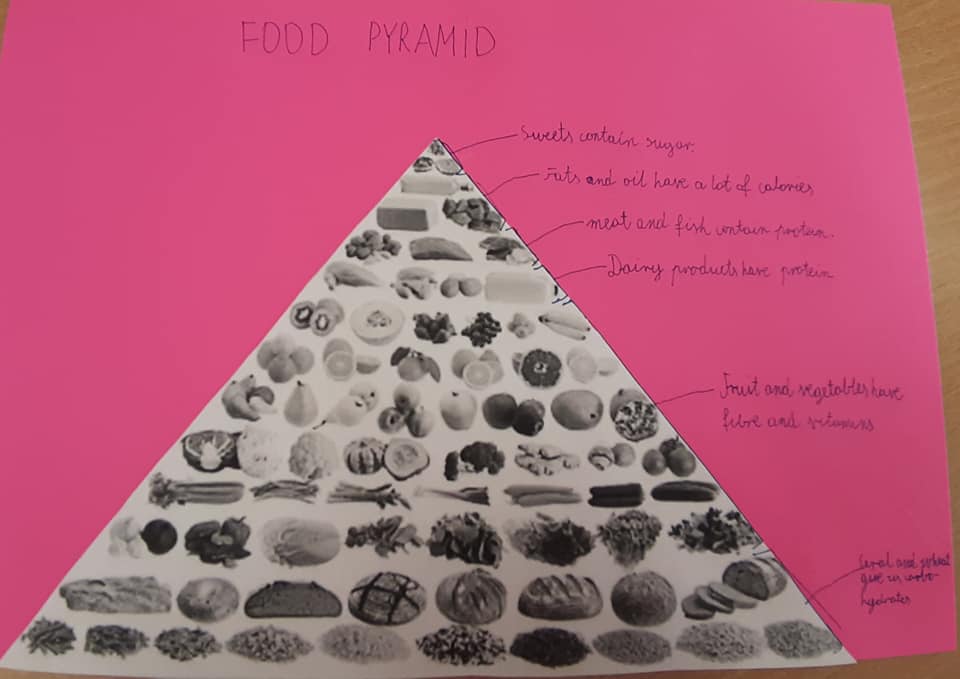 FOOD PYRAMID
Sweets contain sugar.
Fats and oil have a lot of calories
meat and fish contain protein.
Dairy products have protein
Fruit and vegetables have
fibre and vitamins
and wheat
give us carbo-
hydrates